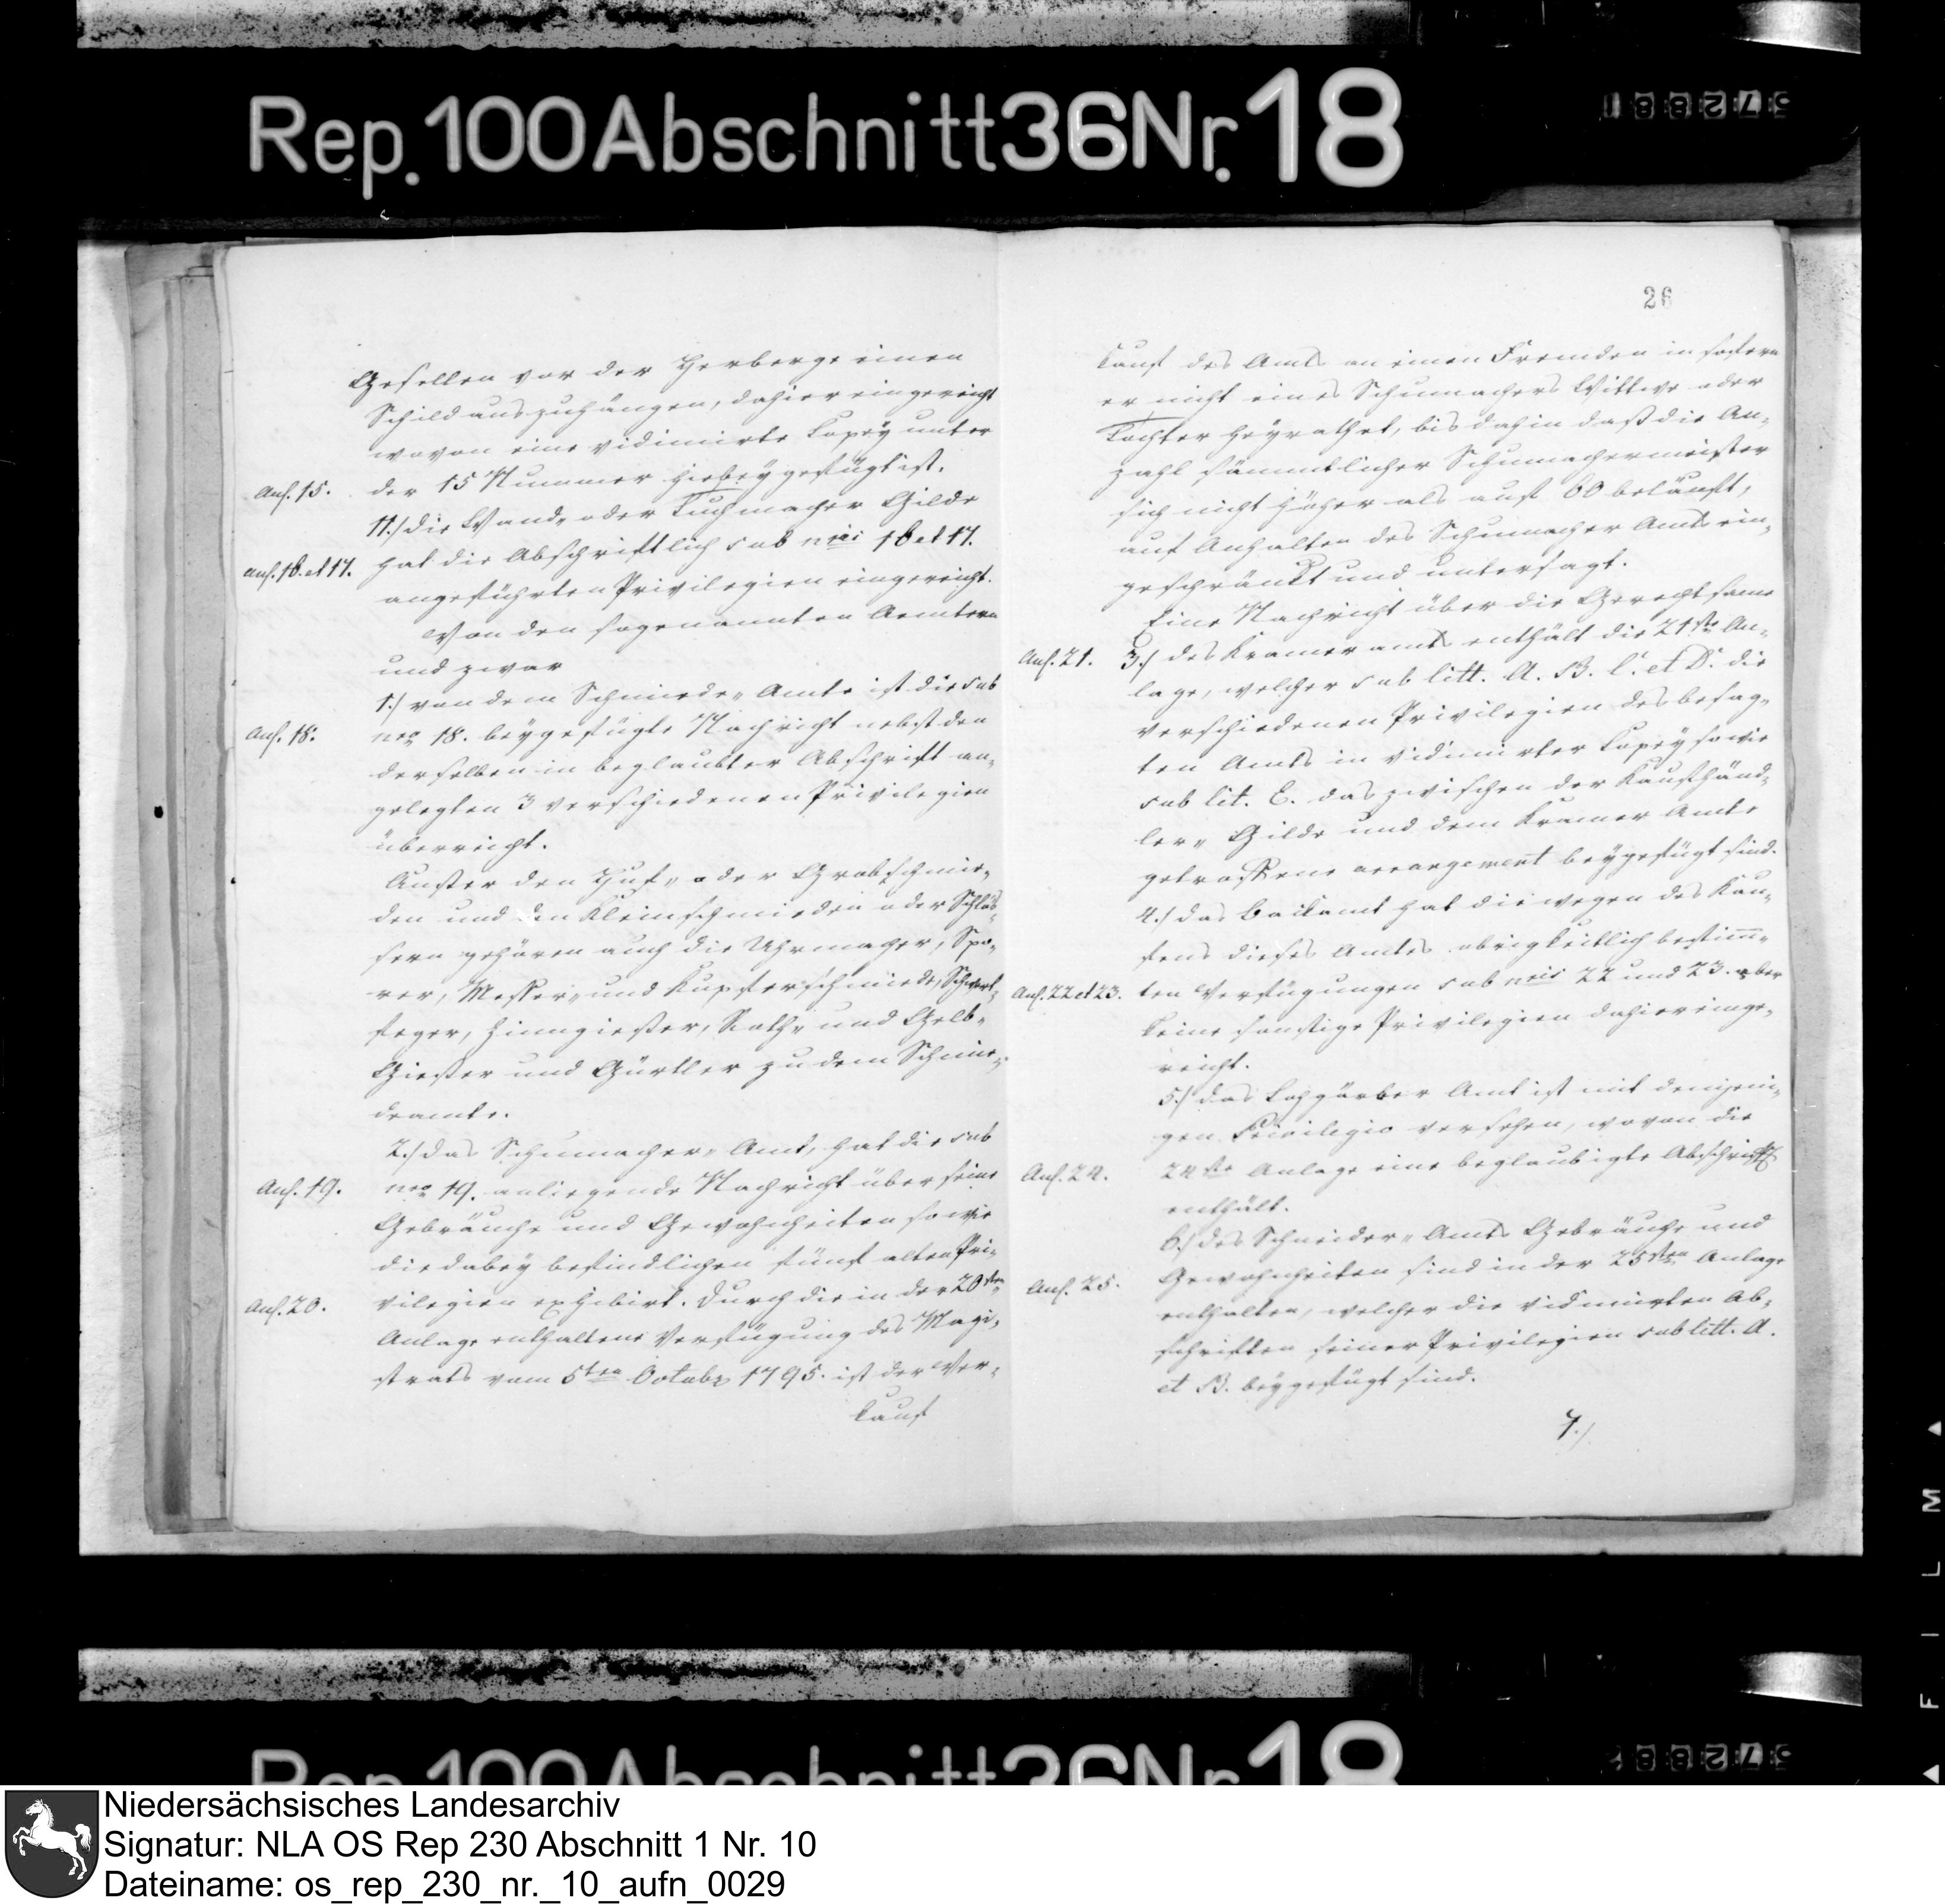 Rep. 100 Abschnitt 36 Nr. 18
Gesellen vor der Herberge einen
Schild auszuhängen, dahier eingereicht
wovon eine vidimirte Copey unter
Anl. 15. der 15 Nummer hiebey gefügt ist.
11./ die Wand- oder Tuchmacher Gilde
Anl. 16. et 17. hat die Abschriftlich sub nris 16 et 17.
angeführten Privilegien eingereicht.
Von den sogenannten Aemtern
und zwar
1./ von dem Schmiede- Amte ist die sub
Anl. 18. nro 18. beygefügte Nachricht nebst den
derselben in beglaubter Abschrift an-
gelegten 3 verschiedenen Privilegien
überreicht.
Außer den Huf- oder Grobschmie-
den und den Kleinschmieden oder Schlös-
sern gehören auch die Uhrmacher, Spo-
rer, Messer- und Kupferschmiede, Schwert-
feger, Zinngießer, Roth- und Gelb-
Gießer und Gürtler zu dem Schmie-
deamte.
2./ das Schumacher- Amt, hat die sub
Anl. 19. nro 19. anliegende Nachricht über seine
Gebräuche und Gewohnheiten so wie
die dabey befindlichen fünf alten Pri-
Anl. 20. vilegien exhibirt. Durch die in der 20sten
Anlage enthaltene Verfügung des Magi-
strats vom 5ten Octobr 1795. ist der Ver-
kauf
26
kauf des Amts an einen Fremden in sofern
er nicht eines Schumachers Wittwe oder
Tochter heyrathet, bis dahin daß die An-
zahl sämmtlicher Schumachermeister
sich nicht höher als auf 60 beläuft,
auf Anhalten des Schumacher Amts ein-
geschränkt und untersagt.
Eine Nachricht über die Gerechtsame
Anl. 21. 3./ des Kramer amts enthält die 21ste An-
lage, welcher sub litt. A. B. C. et D. die
verschiedenen Privilegien des besag-
ten Amts in vidimirter Copey so wie
sub lit. E. das zwischen der Kaufhänd-
ler- Gilde und dem Kramer Amte
getroffene arrangement beygefügt sind.
4./ das Backamt hat die wegen des Kau-
fens dieses Amtes obrigkeitlich bestimm-
Anl. 22 et 23. ten Verfügungen sub nris 22 und 23. aber
keine sonstige Privilegien dahier einge-
reicht.
5./ das Lohgärber Amt ist mit demjeni-
gen Privilegio versehen, wovon die
Anl. 24. 24ste Anlage eine beglaubigte Abschrift
enthält.
6./ des Schneider- Amts Gebräuche und
Anl. 25. Gewohnheiten sind in der 25sten Anlage
enthalten, welcher die vidimirten Ab-
schriften seiner Privilegien sub litt. A.
et B. beygefügt sind.
7./
FILM
Rep. 100 Abschnitt 36 Nr. 18
Niedersächsisches Landesarchiv
Signatur: NLA OS Rep 230 Abschnitt 1 Nr. 10
Dateiname: os_rep_230_nr._10_aufn_0029